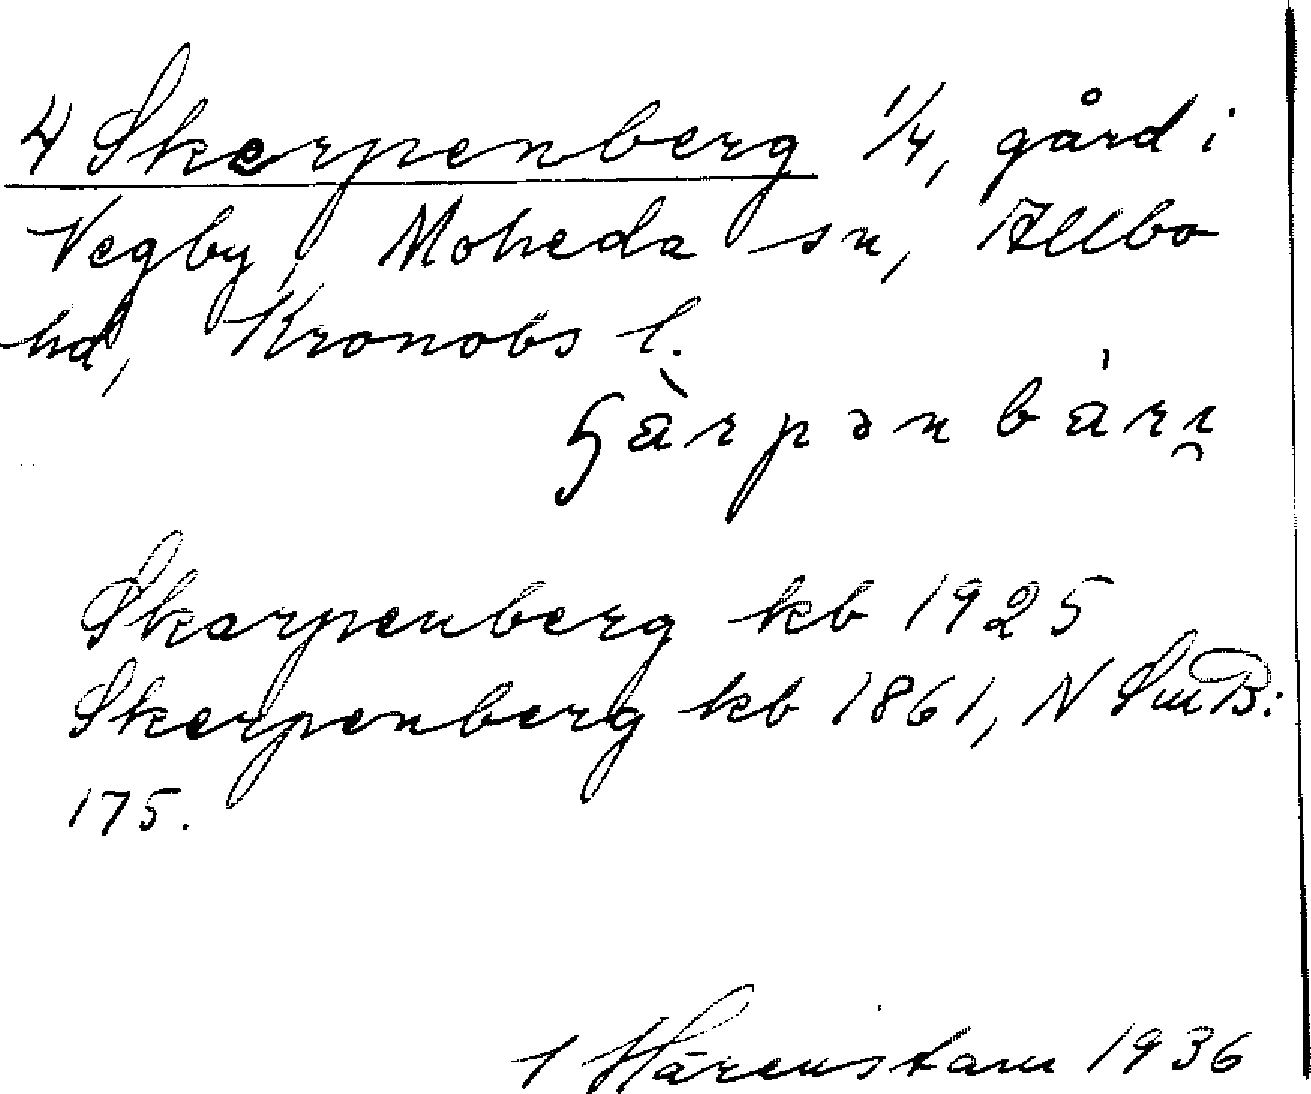 4 Skerpenberg 1/4, gård i
Vegby, Moheda sn, Allbo
hd, Kronobs l.
ʃàrpənbárɪ̯
Skarpenberg kb 1925
Skerpenberg kb 1861, N SmB:
175.
1 Härenstam 1936